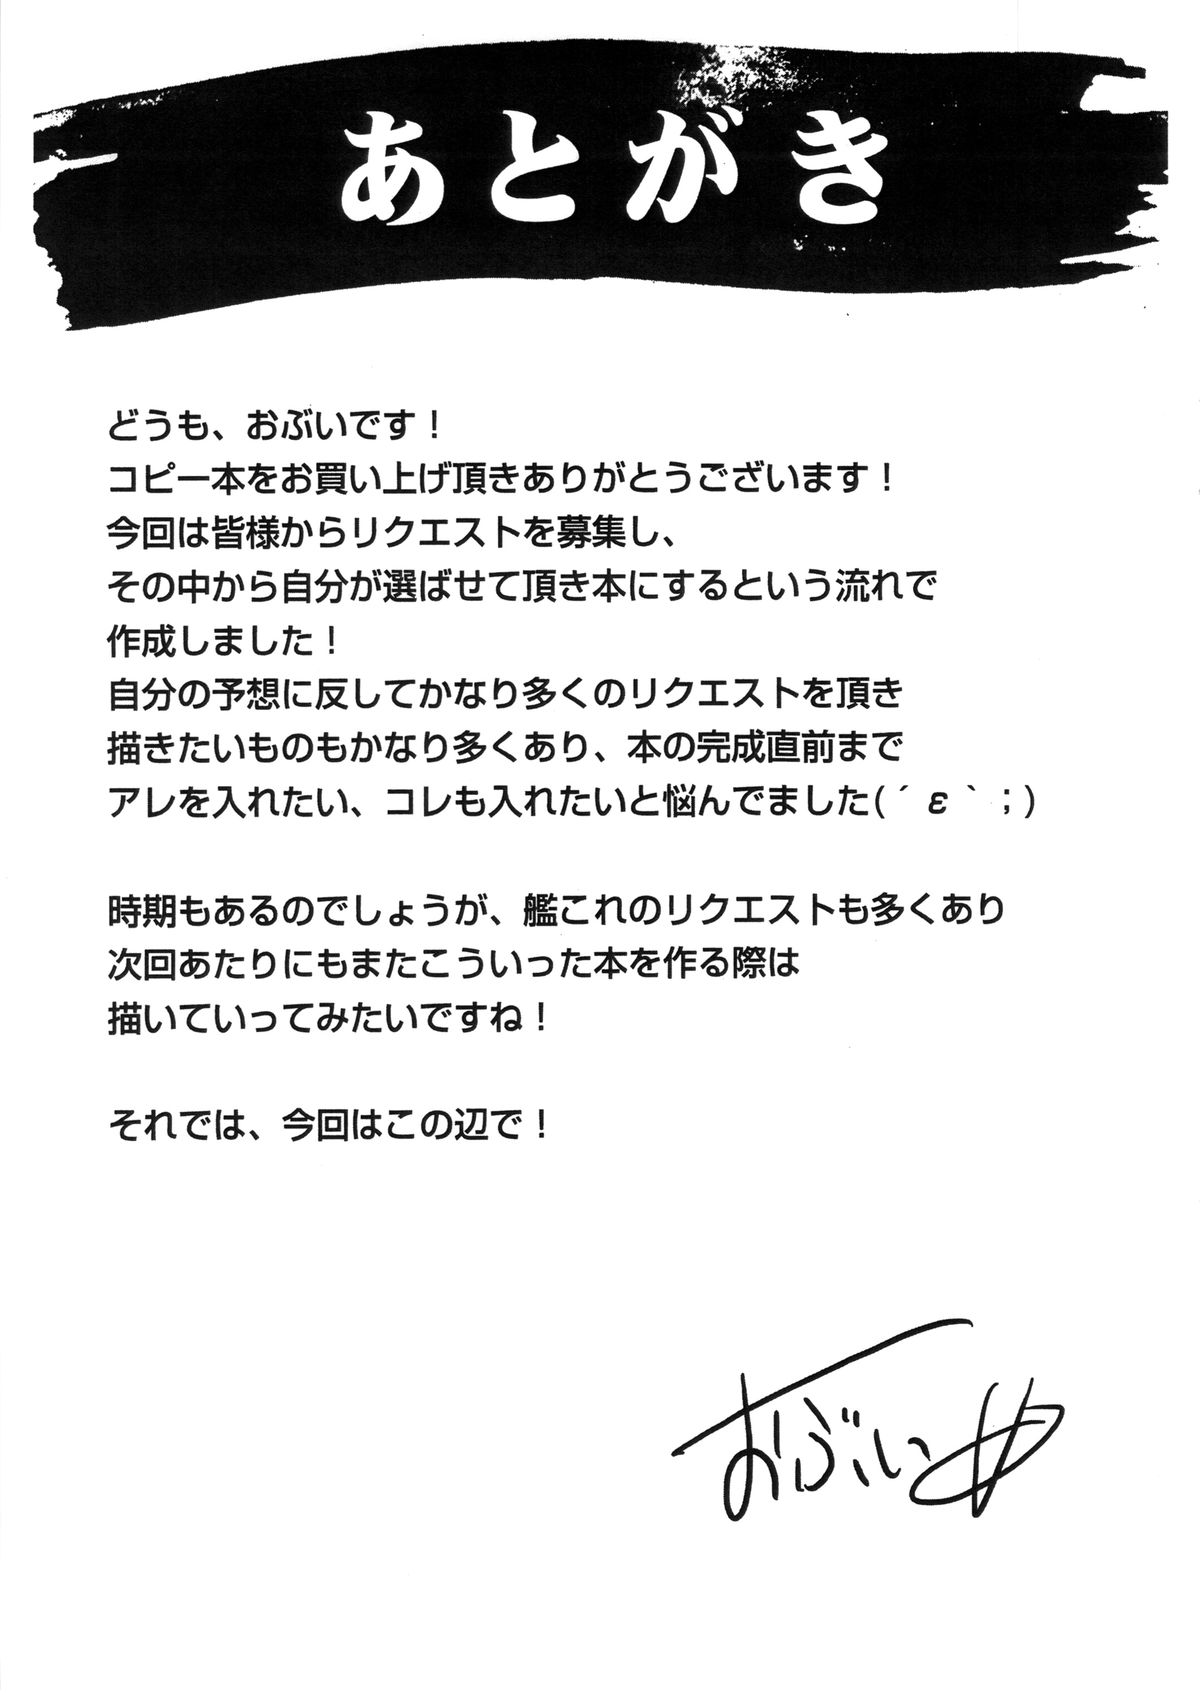 あとがき
どうも、おぶいです！
コピー本をお買い上げ頂きありがとうございます！
今回は皆様からリクエストを募集し、
その中から自分が選ばせて頂き本にするという流れで
作成しました！
自分の予想に反してかなり多くのリクエストを頂き
描きたいものもかなり多くあり、本の完成直前まで
アレを入れたい、コレも入れたいと悩んでました(´ε｀；)
時期もあるのでしょうが、艦これのリクエストも多くあり
次回あたりにもまたこういった本を作る際は
描いていってみたいですね！
それでは、今回はこの辺で！
おぶい